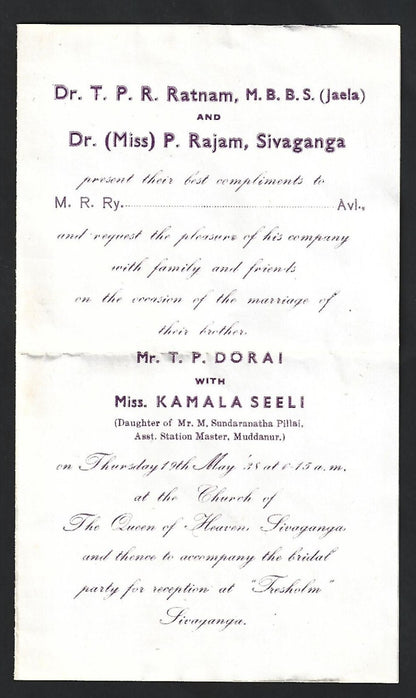 Dr. T. P. R. Ratnam, M. B. B. S. (Jaela)
AND
Dr. (Miss) P. Rajam, Sivaganga
present their best compliments to
M. R. Ry. Avl.,
and request the pleasure of his company
with family and friends
on the occasion of the marriage of
their brother.
Mr. T. P. DORAI
WITH
Miss. KAMALA SEELI
(Daughter of Mr. M. Sundaranatha Pillai,
Asst. Station Master, Muddanur.)
on Thursday 19th May '38 at 6-15 a.m.
at the Church of
The Queen of Heaven, Sivaganga,
and thence to accompany the bridal
party for reception at "Tresholm"
Sivaganga.